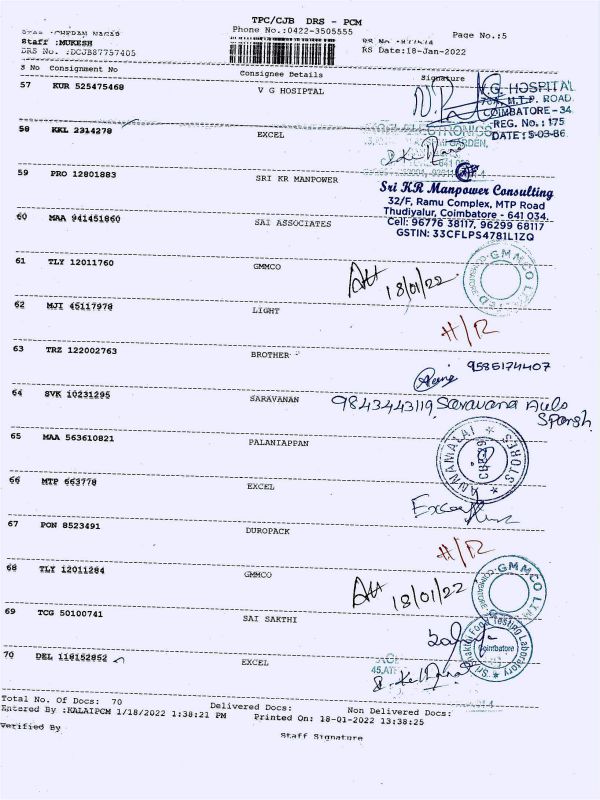 TPC/CJB DRS - PCM
Phone No.:0422-3505555
Page No.:5
Staff :MUKESH
DRS No. :DCJB87757405
RS Date:18-Jan-2022
S No Consignment No Consignee Details Signature
57 KUR 525475468 V G HOSIPTAL
V.G. HOSPITAL
M.T.P. ROAD
COIMBATORE - 34
REG. No.: 175
DATE: 5-03-86
58 KKL 2314278 EXCEL
59 PRO 12801883 SRI KR MANPOWER
Sri KR Manpower Consulting
32/F, Ramu Complex, MTP Road
Thudiyalur, Coimbatore - 641 034.
Cell: 96776 38117, 96299 68117
GSTIN: 33CFLPS4781L1ZQ
60 MAA 941451860 SAI ASSOCIATES
61 TLY 12011760 GMMCO
18/01/22
GMMCO
62 MJI 45117978 LIGHT
H/R
63 TRZ 122002763 BROTHER
9585174407
64 SVK 10231295 SARAVANAN
9843443119 Saravana
65 MAA 563610821 PALANIAPPAN
ANNAMALAI STORES
66 MTP 663778 EXCEL
67 PON 8523491 DUROPACK
H/R
68 TLY 12011284 GMMCO
18/01/22
GMMCO
69 TCG 50100741 SAI SAKTHI
Food Testing Laboratory
Coimbatore
70 DEL 118152852 EXCEL
Total No. Of Docs: 70 Delivered Docs: Non Delivered Docs:
Entered By :KALAIPCM 1/18/2022 1:38:21 PM Printed On: 18-01-2022 13:38:25
Verified By
Staff Signature